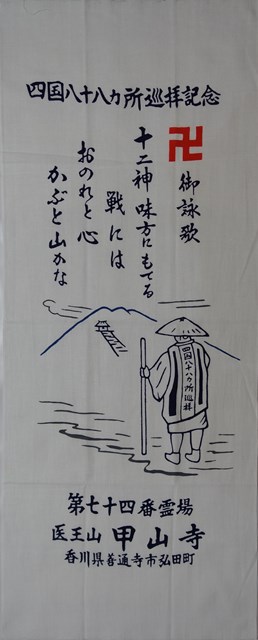 四国八十八カ所巡拝記念
卍
御詠歌
十二神味方にもてる
戦には
おのれと心
かぶと山かな
四国八十八カ所巡拝
第七十四番霊場
医王山 甲山寺
香川県善通寺市弘田町